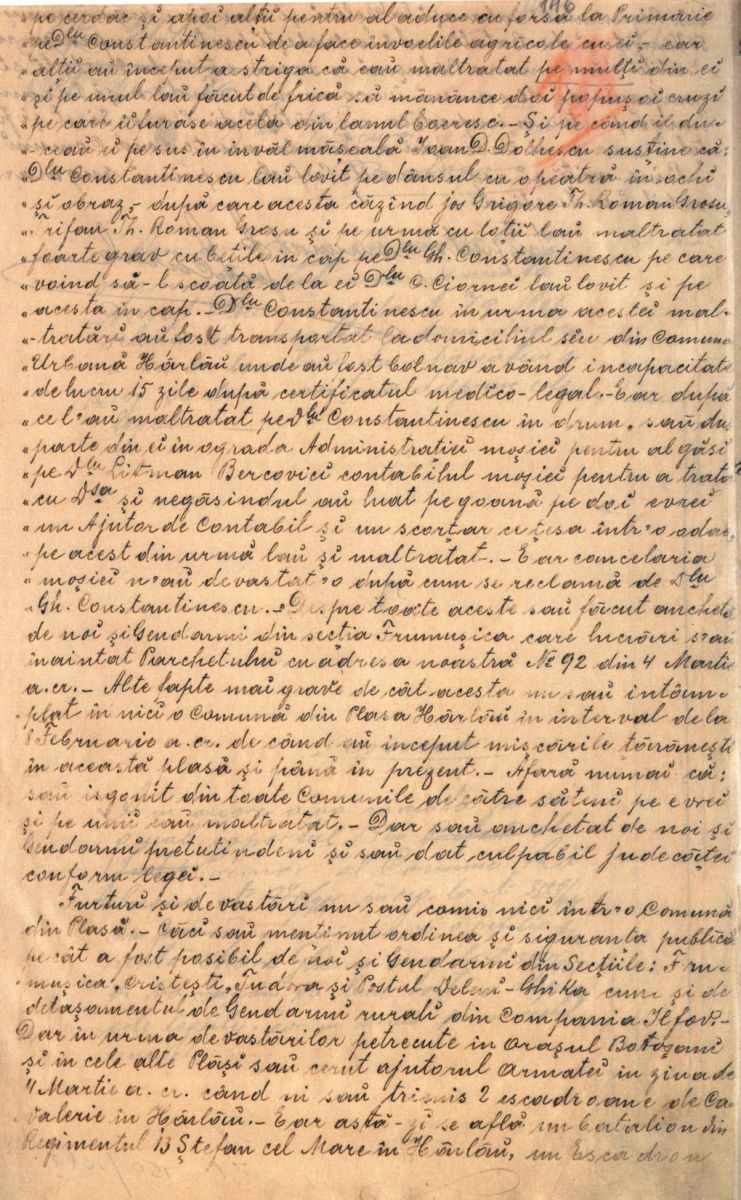 146
„pe cerdac și apoi alții pentru al aduce cu forsa la Primărie
„pe Dlu Constantinescu de a face învoelile agricole cu ei, - ear
„alții au început a striga că eau maltratat pe mulți din ei
„și pe unul lau făcut de frică să mănânce doi popușoi cruzi
„pe care îi furase acela din lanul boeresc. - Și pe când îl du-
„-ceau ei pe sus în învălmășeală Ioan D. Dolhescu susține că:
„Dlu Constantinescu lau lovit pe dânsul cu o peatră în ochi
„și obraz, - după care acesta căzind jos Grigore Th. Roman Grosu,
„Trifan Th. Roman Grosu și pe urmă cu toții lau maltratat
„foarte grav cu bețile în cap pe Dlu Gh. Constantinescu pe care
„voind să-l scoată de la ei Dlu C. Ciornei lau lovit și pe
„acesta în cap. - Dlu Constantinescu în urma acestei mal-
„-tratări au fost transportat la domiciliul seu din Comuna
„Urbană Hârlău unde au fost bolnav având incapacitate
„de lucru 15 zile după certificatul medico-legal. - Ear după
„ce l'au maltratat pe Dlu Constantinescu în drum, sau dus
„parte din ei în ograda Administrației moșiei pentru al găsi
„pe Dlu Litman Bercovici contabilul moșiei pentru a trata
„cu Dsa și negăsindul au luat pe goană pe doi evrei
„un Ajutor de Contabil și un scorțar ce țesa într'o odae,
„pe acest din urmă lau și maltratat. - Ear cancelaria
„moșiei n'au devastat'o după cum se reclamă de Dlu
„Gh. Constantinescu. - Despre toate aceste sau făcut anchetă
de noi și Gendarmi din secția Frumușica care lucrări s'au
înaintat Parchetului cu adresa noastră No 92 din 4 Martie
a. cr. - Alte fapte mai grave de cât acesta nu sau întâm-
plat în nici o Comună din Plasa Hârlău în interval de la
8 Februarie a. cr. de când au început mișcările țărănești
în această plasă și până în prezent. - Afară numai că:
sau isgonit din toate Comunile de către săteni pe evrei
și pe unii eau maltratat. - Dar sau anchetat de noi și
Gendarmi pretutindeni și sau dat culpabili judecăței
conform legei. -
Furturi și devastări nu sau comis nici într'o Comună
din Plasă. - Căci sau menținut ordinea și siguranța publică
pe cât a fost posibil de noi și Gendarmi din Secțiile: Fru-
mușica, Cristești, Tudora și Postul Deleni-Ghika cum și de
detașamentul de Gendarmi rurali din Compania Ilfov. -
Dar în urma devastărilor petrecute în orașul Botoșani
și în cele alte Plăși sau cerut ajutorul armatei în ziua de
4 Martie a. cr. când ni sau trimis 2 escadroane de Ca-
valerie în Hârlău. - Ear astă-zi se află un batalion din
Regimentul 13 Ștefan cel Mare în Hârlău, un Escadron